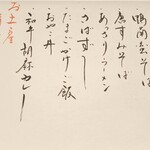 鴨南蛮そば
唐すみそば
あっさりラーメン
さばずし
たまごかけご飯
おやこ丼
和牛胡麻カレー
お土産